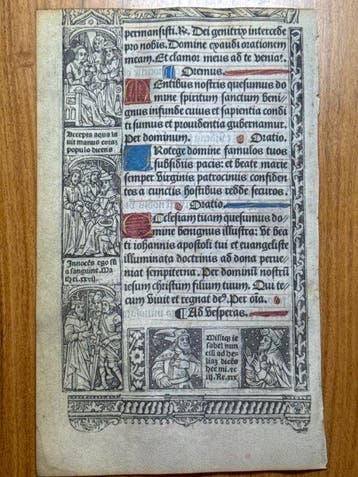 permansisti. R. Dei genitrix intercede
pro nobis. Domine exaudi orationem
meam. Et clamor meus ad te venia.
Oremus.
Mentibus nostris quesumus do
mine spiritum sanctum beni
gnus infunde cuius et sapientia condi
ti sumus et providentia gubernamur.
Per dominum. Oratio.
Protege domine famulos tuos
subsidiis pacis: et beate marie
semper virginis patrociniis confidentes
a cunctis hostibus redde securos.
Oratio.
Ecclesiam tuam quesumus do-
mine benignus illustra: Ut bea
ti iohannis apostoli tui et euangeliste
illuminata doctrinis ad dona perue
niat sempiterna. Per dominum nostrum
iesum christum filium tuum. Qui te-
cum vivit et regnat de9. Per oia.
Ad vesperas.
Accepta aqua la
uit manus coraz
populo dicens
Innocens ego su
a sanguine. Ma
thei. xxvii.
Misitq3 ie
sabel nun
ciu ad he
liaz dices